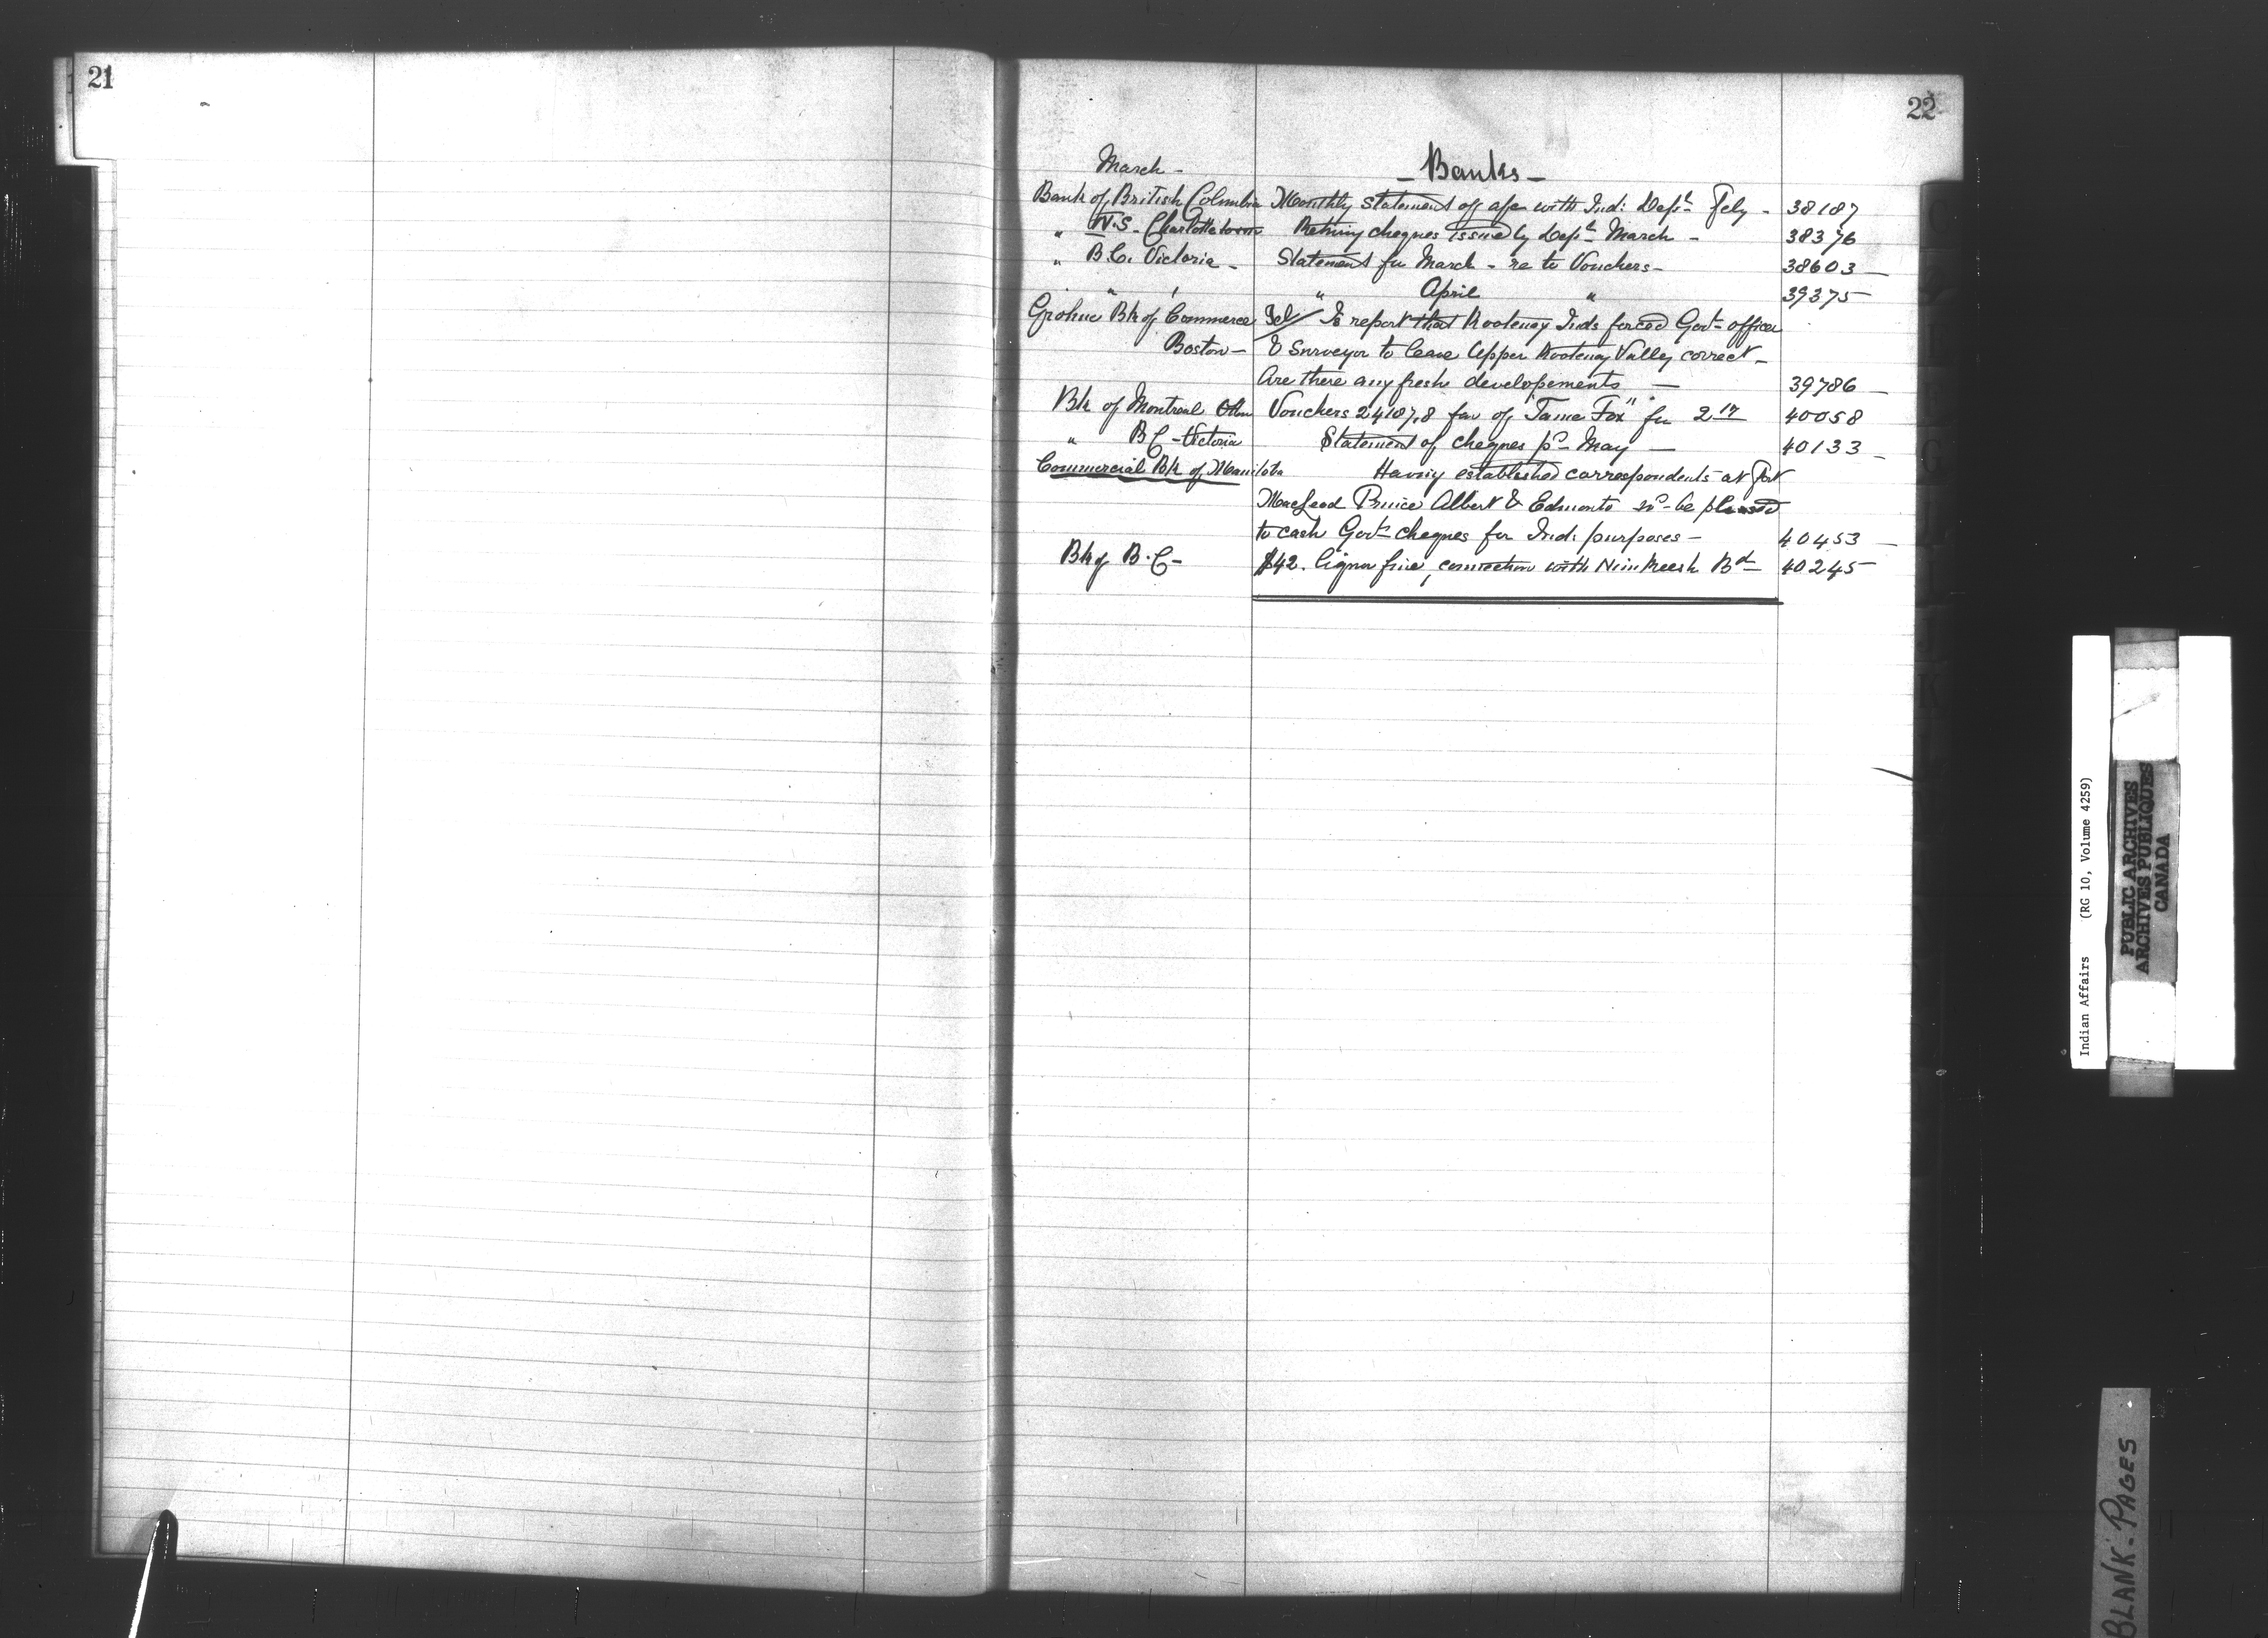 21
22
March -
- Banks -
Bank of British Columbia Monthly Statement of a/c with Ind: Dept Feby - 38187
" N.S. Charlottetown Retiring cheques issued by Dept March - 38376
" B.C. Victoria - Statement for March - re to Vouchers - 38603 -
" " " April " 39375 -
Bk of Commerce Tel/ Is report that Kootenay Inds forced Govt officer
Boston - & Surveyor to leave Upper Kootenay Valley correct -
Are there any fresh developements - 39786 -
Bk of Montreal Ottwa Vouchers 24107,8 fav of "Tame Fox" for 40058
" B C - Victoria Statement of cheques pr May - 40133 -
Commercial Bk of Manitoba Having established correspondents at Fort
MacLeod Prince Albert & Edmonto be pleased
to cash Govt cheques for Ind: purposes - 40453 -
Bk of B.C - $42. liquor fine, connection with Nimkeesh Bd 40245
Indian Affairs (RG 10, Volume 4259)
PUBLIC ARCHIVES
ARCHIVES PUBLIQUES
CANADA
BLANK. PAGES